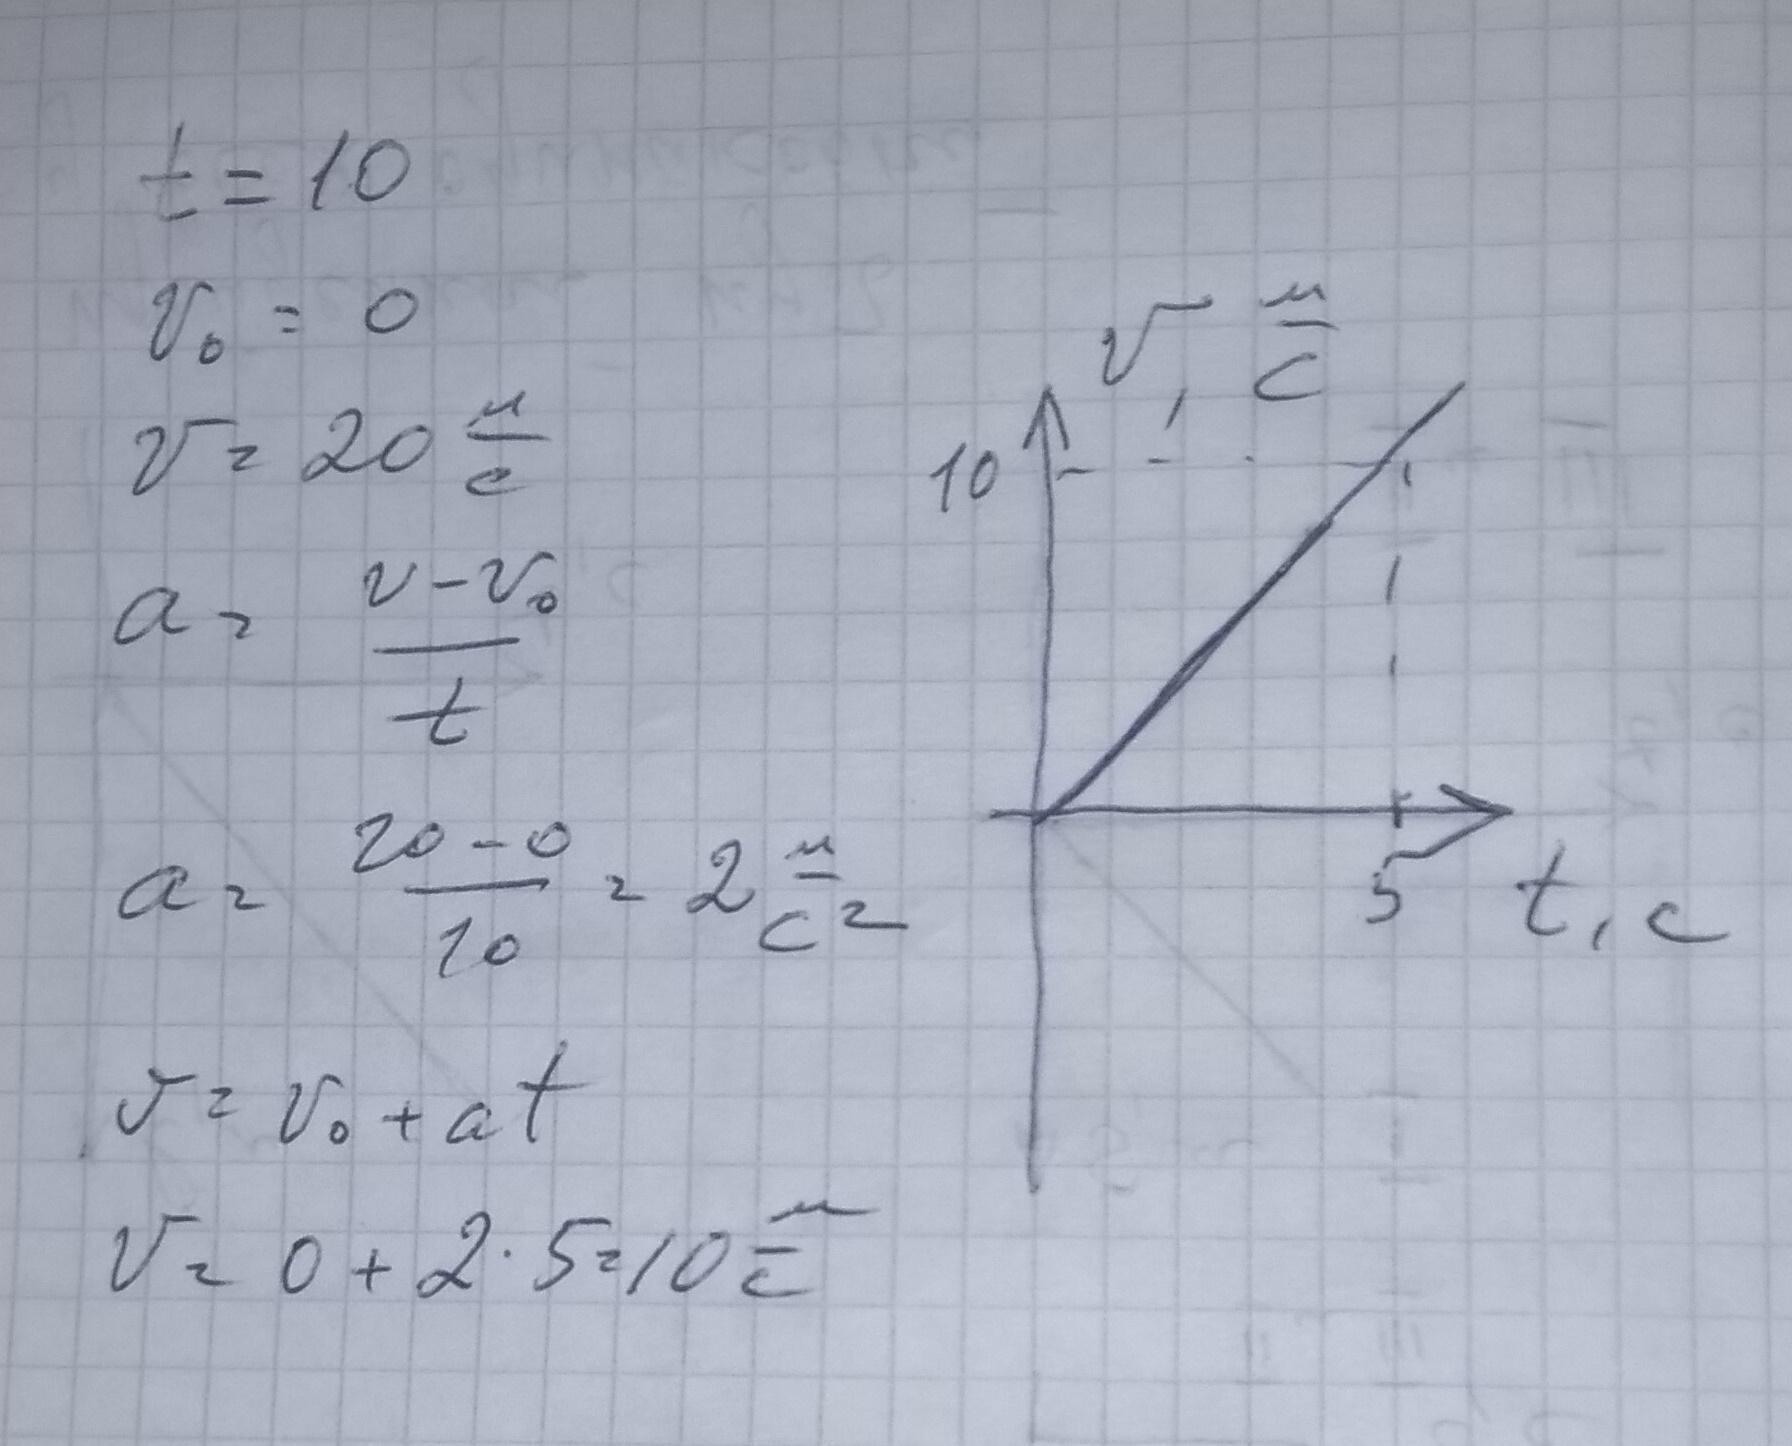 t = 10
v₀ = 0
v = 20 м/с
a = (v - v₀)/t
a = (20 - 0)/10 = 2 м/с²
v = v₀ + at
v = 0 + 2 · 5 = 10 м/с
v, м/с
10
5
t, с